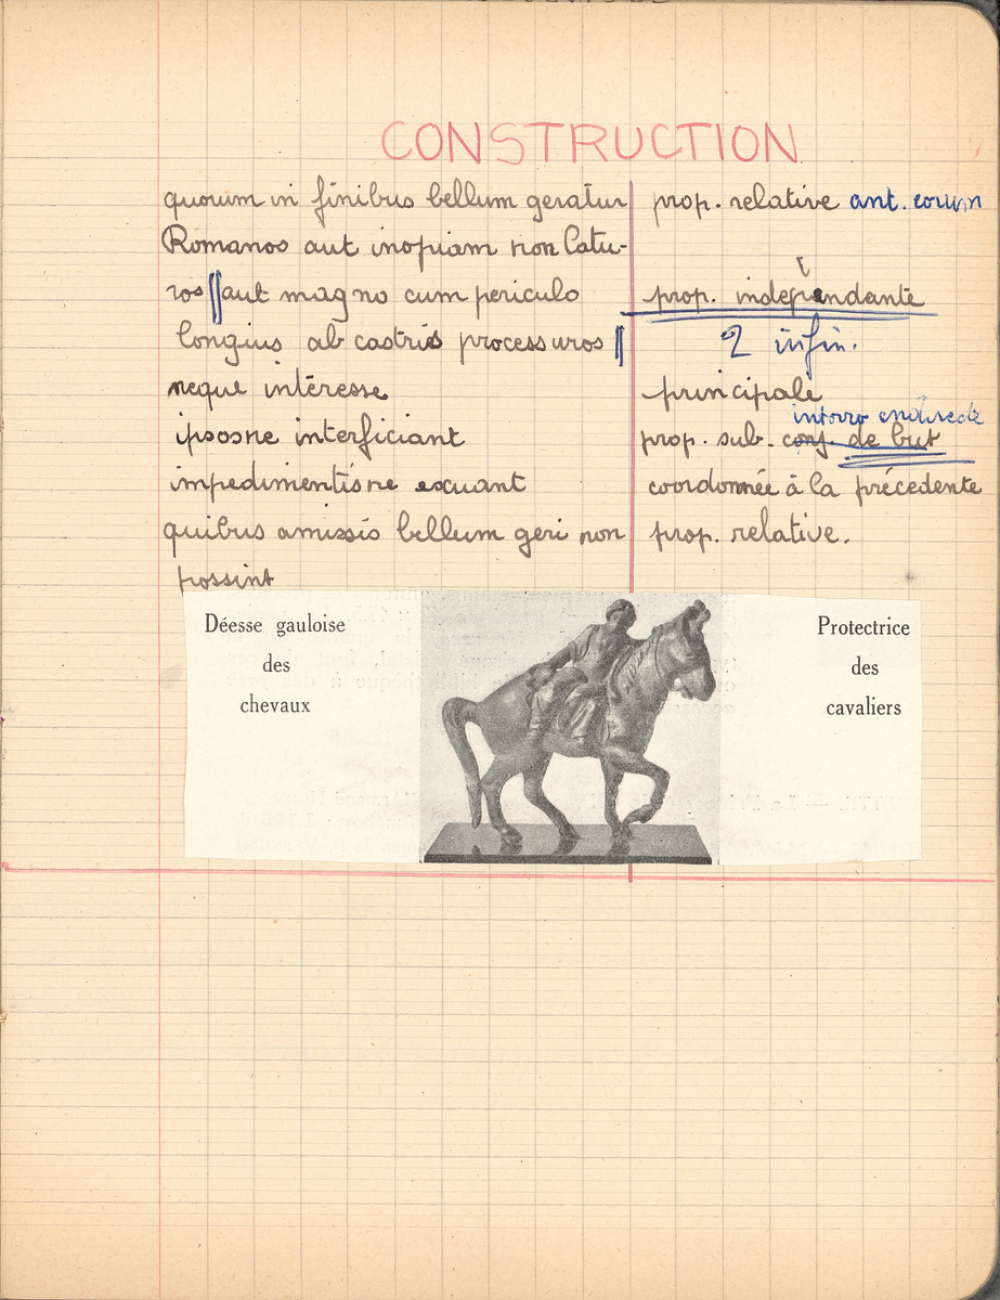 CONSTRUCTION
quorum in finibus bellum geratur prop. relative ant. eorum
Romanos aut inopiam non latu-
ros || aut magno cum periculo prop. indépendante
longius ab castris processuros || 2 infin.
neque intéresse principale
interro indirecte
ipsosne interficiant prop. sub. conj. de but
impedimentisne exuant coordonnée à la précédente
quibus amissis bellum geri non prop. relative.
possint
Déesse gauloise
des
chevaux
Protectrice
des
cavaliers